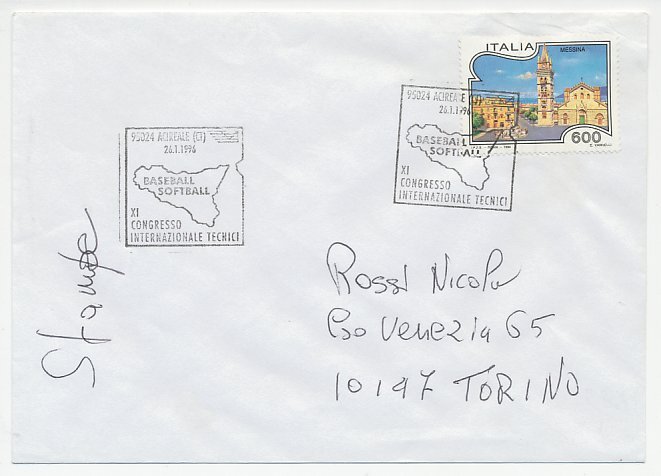 ITALIA
MESSINA
600
95024 ACIREALE (CT)
26.1.1996
BASEBALL
SOFTBALL
XI
CONGRESSO
INTERNAZIONALE TECNICI
95024 ACIREALE (CT)
26.1.1996
BASEBALL
SOFTBALL
XI
CONGRESSO
INTERNAZIONALE TECNICI
Stampe
Rossi Nicola
Cso Venezia 65
10147 TORINO